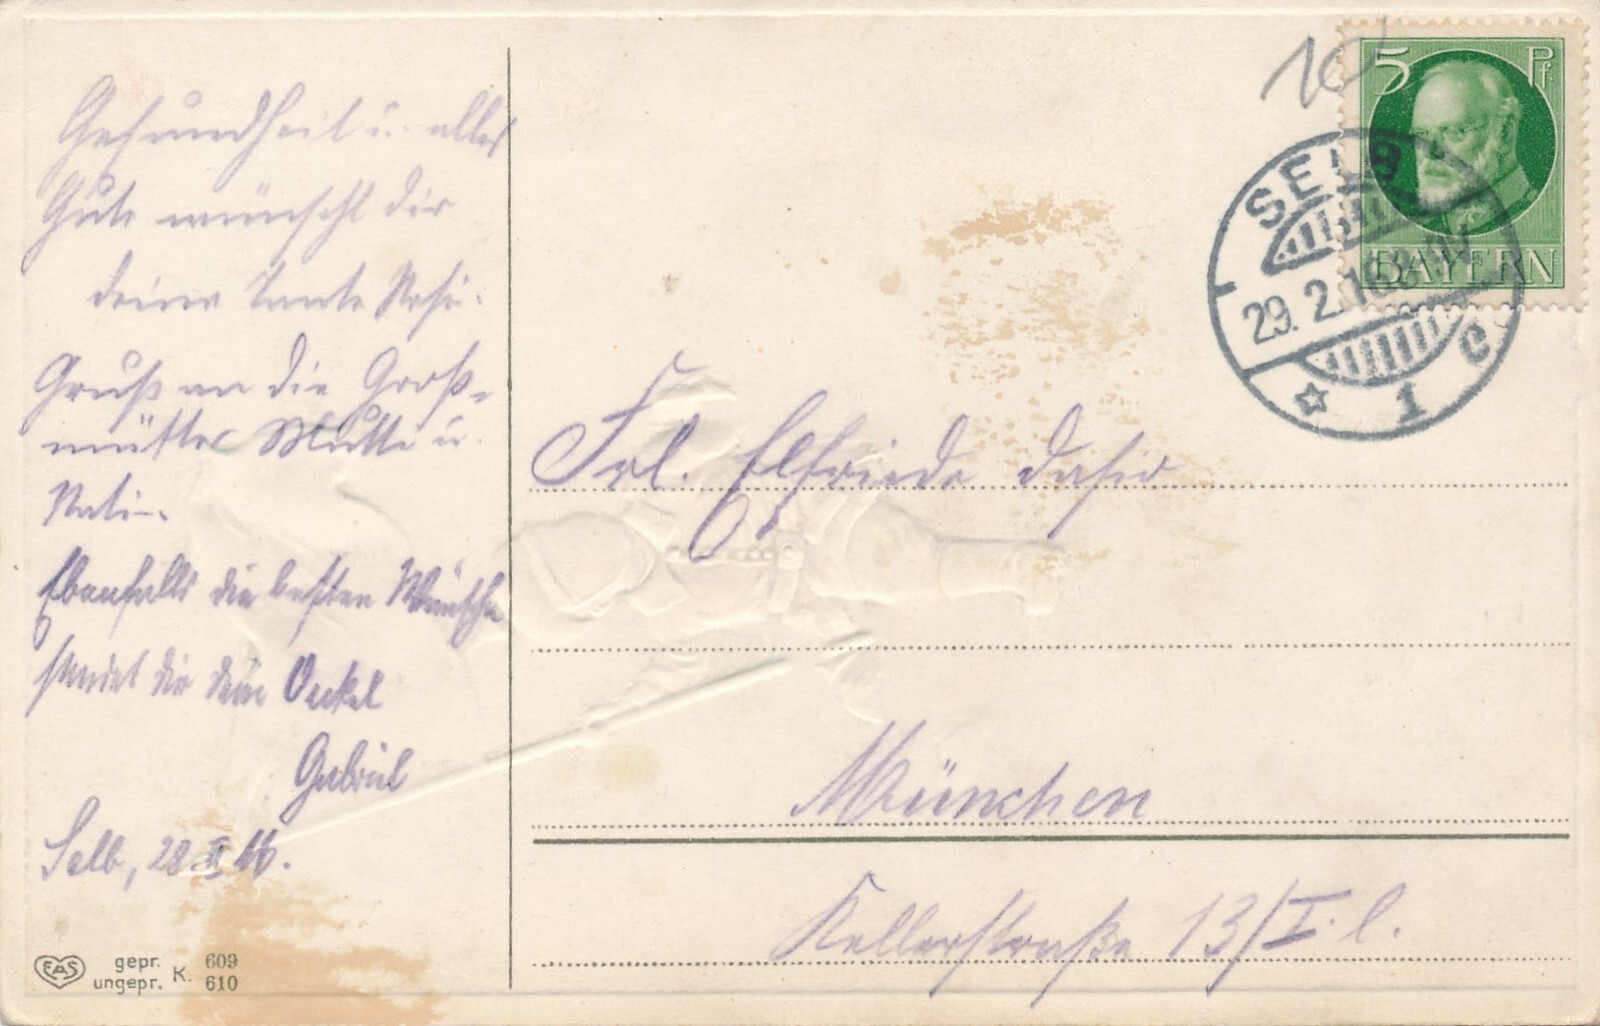 Gesundheit u. alles
Gute wünscht dir
deine Tante Resi.
Gruß an die Groß=
mütter Mutti u.
Vati.
Ebenfalls die besten Wünsche
sendet dir dein Onkel
Gabriel
Selb, 28 II 16.
EAS
gepr. 609
ungepr. K. 610
10
5 Pf
BAYERN
SELB
29. 2. 16
★ 1 c
Frl. Elfriede
München
Kellerstraße 13/I. l.